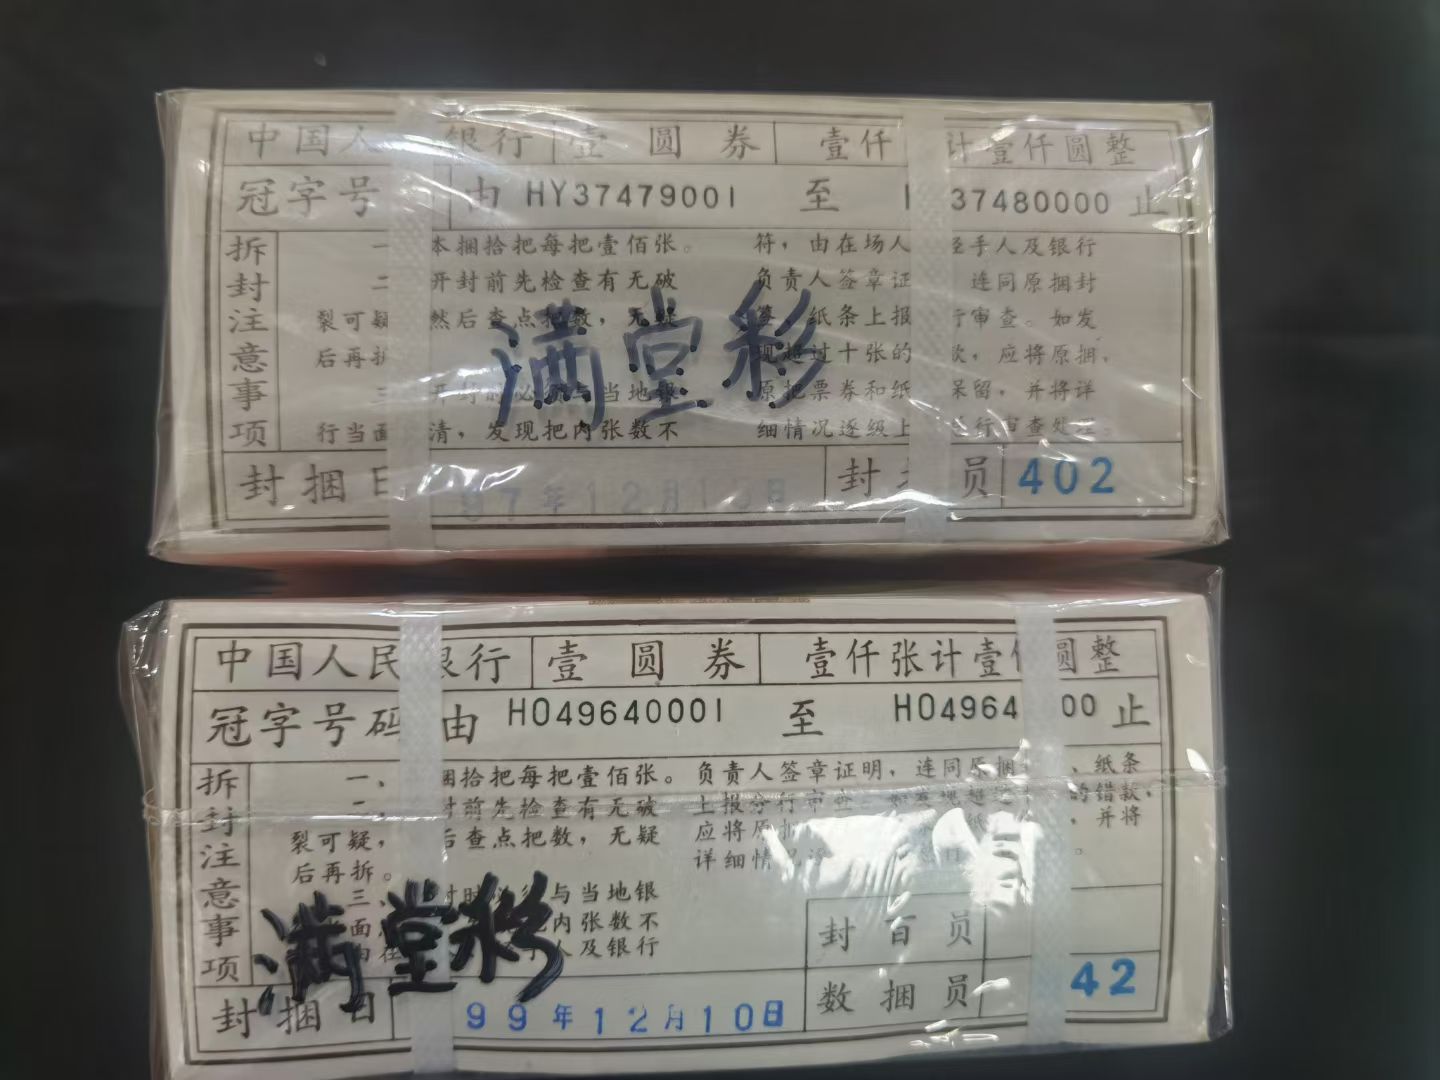 中国人 银行 壹圆券 壹仟 计壹仟圆整
冠字号 由 HY37479001 至 H 37480000 止
拆封注意事项
一 本捆拾把每把壹佰张。
二 开封前先检查有无破
裂可疑 然后查点把数，无疑
后再拆
三 开封时必须与当地银
行当面 清，发现把内张数不
符，由在场人 经手人及银行
负责人签章证 连同原捆封
签 纸条上报 行审查。如发
现超过十张的 款，应将原捆，
原把票券和纸 保留，并将详
细情况逐级上 进行审查处理。
满堂彩
封捆日 97年12月19日 封 员 402
中国人民银行 壹圆券 壹仟张计壹仟圆整
冠字号码 由 HO49640001 至 HO4964 00 止
拆封注意事项
一、 捆拾把每把壹佰张。
二、 封前先检查有无破
裂可疑， 后查点把数，无疑
后再拆。
三、 封时必须与当地银
面 把内张数不
由在 手人及银行
负责人签章证明，连同原捆 、纸条
上报分行审查。如发现超过 的错款，
应将原捆 纸 ，并将
详细情况逐
满堂彩
封百员
封捆日 99年12月10日 数捆员 42